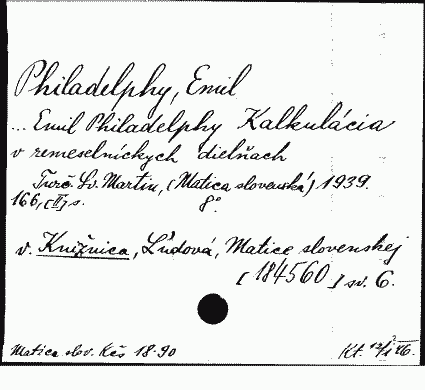 Philadelphy, Emil
... Emil Philadelphy Kalkulácia
v remeselníckych dielňach
Turč. Sv. Martin, (Matica slovenská) 1939.
166, [II] s. 8°.
v. Knižnica, Ľudová, Matice slovenskej
[184560] sv. 6.
Matica slov. Kčs 18.90
Kt. 46.